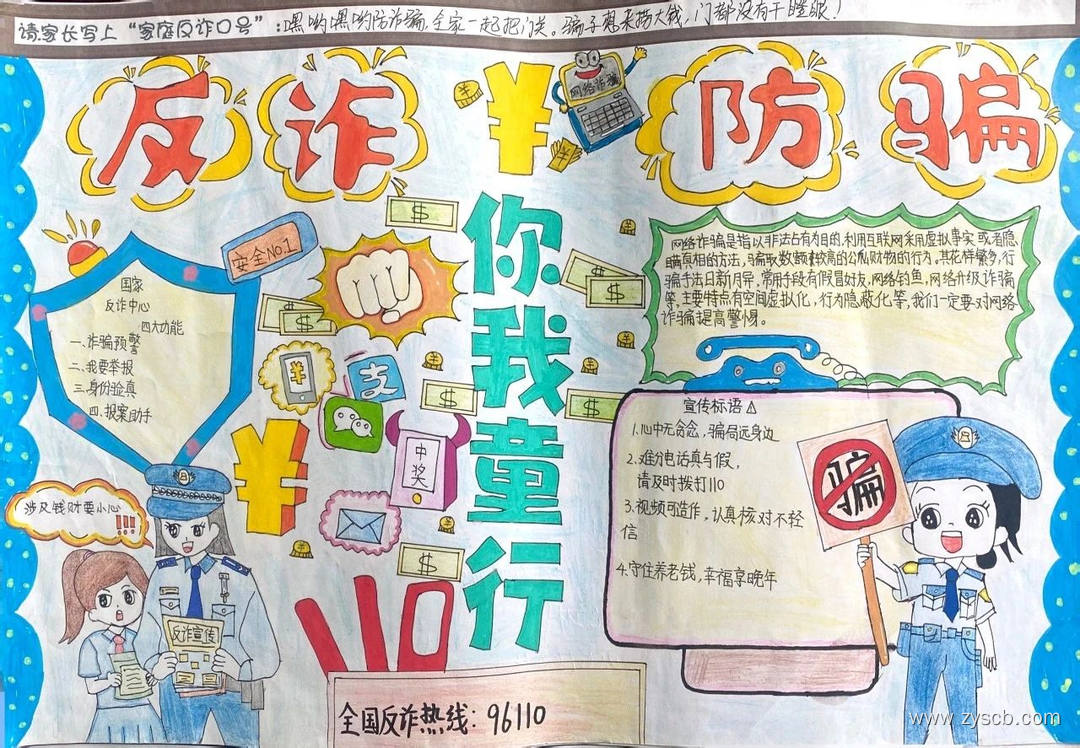 请家长写上“家庭反诈口号”:嘿哟嘿哟防诈骗,全家一起把门关。骗子想来捞大钱,门都没有干瞪眼!
反诈 ¥ 防骗
网络诈骗
你我童行
安全No.1
国家
反诈中心
四大功能
一、诈骗预警
二、我要举报
三、身份验真
四、报案助手
网络诈骗是指以非法占有为目的,利用互联网采用虚拟事实或者隐
瞒真相的方法,骗取数额较高的公私财物的行为。其花样繁多,行
骗手法日新月异,常用手段有假冒好友、网络钓鱼,网络升级诈骗
等,主要特点有空间虚拟化,行为隐蔽化等,我们一定要对网络
诈骗提高警惕。
¥
支
中奖
¥
$
$
$
$
$
$
$
宣传标语
1.心中无贪念,骗局远身边
2.难分电话真与假,
请及时拨打110
3.视频可造作,认真核对不轻
信
4.守住养老钱,幸福享晚年
骗
涉及钱财要小心!!!
反诈宣传
NO
全国反诈热线:96110
www.zyscb.com